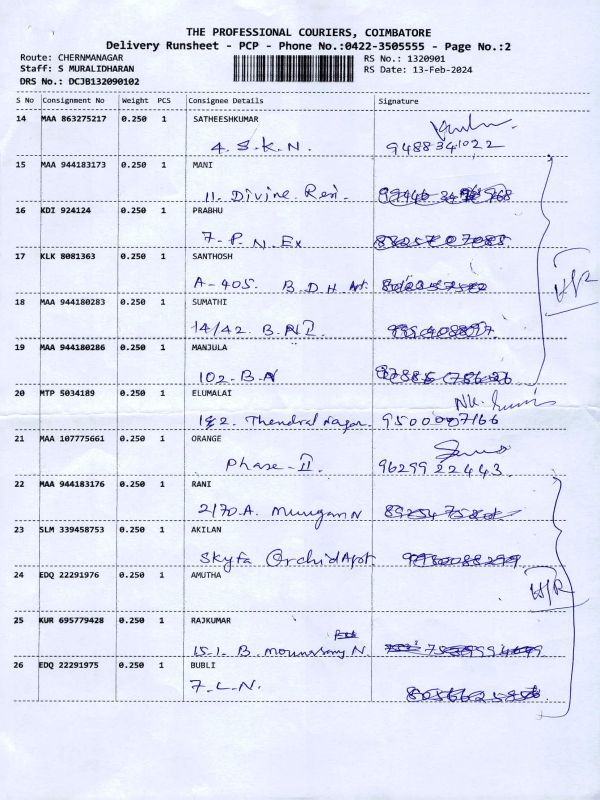 THE PROFESSIONAL COURIERS, COIMBATORE
Delivery Runsheet - PCP - Phone No.:0422-3505555 - Page No.:2
Route: CHERNMANAGAR RS No.: 1320901
Staff: S MURALIDHARAN RS Date: 13-Feb-2024
DRS No.: DCJB132090102
S No Consignment No Weight PCS Consignee Details Signature
14 MAA 863275217 0.250 1 SATHEESHKUMAR
4. S.K.N. 9488341022
15 MAA 944183173 0.250 1 MANI
11. Divine Resi.
16 KDI 924124 0.250 1 PRABHU
7. P. N. Ex
17 KLK 8081363 0.250 1 SANTHOSH
A-405. B.D.H. Apt. H/R
18 MAA 944180283 0.250 1 SUMATHI
14/42. B.N
19 MAA 944180286 0.250 1 MANJULA
102-B.N
20 MTP 5034189 0.250 1 ELUMALAI
Thendral Nagar. 9500007166
21 MAA 107775661 0.250 1 ORANGE
Phase-II. 9629922443
22 MAA 944183176 0.250 1 RANI
2/70.A. Murugan N
23 SLM 339458753 0.250 1 AKILAN
Skyfa Orchid Apt.
24 EDQ 22291976 0.250 1 AMUTHA
H/R
25 KUR 695779428 0.250 1 RAJKUMAR
15-1. B. N.
26 EDQ 22291975 0.250 1 BUBLI
7-L.N.